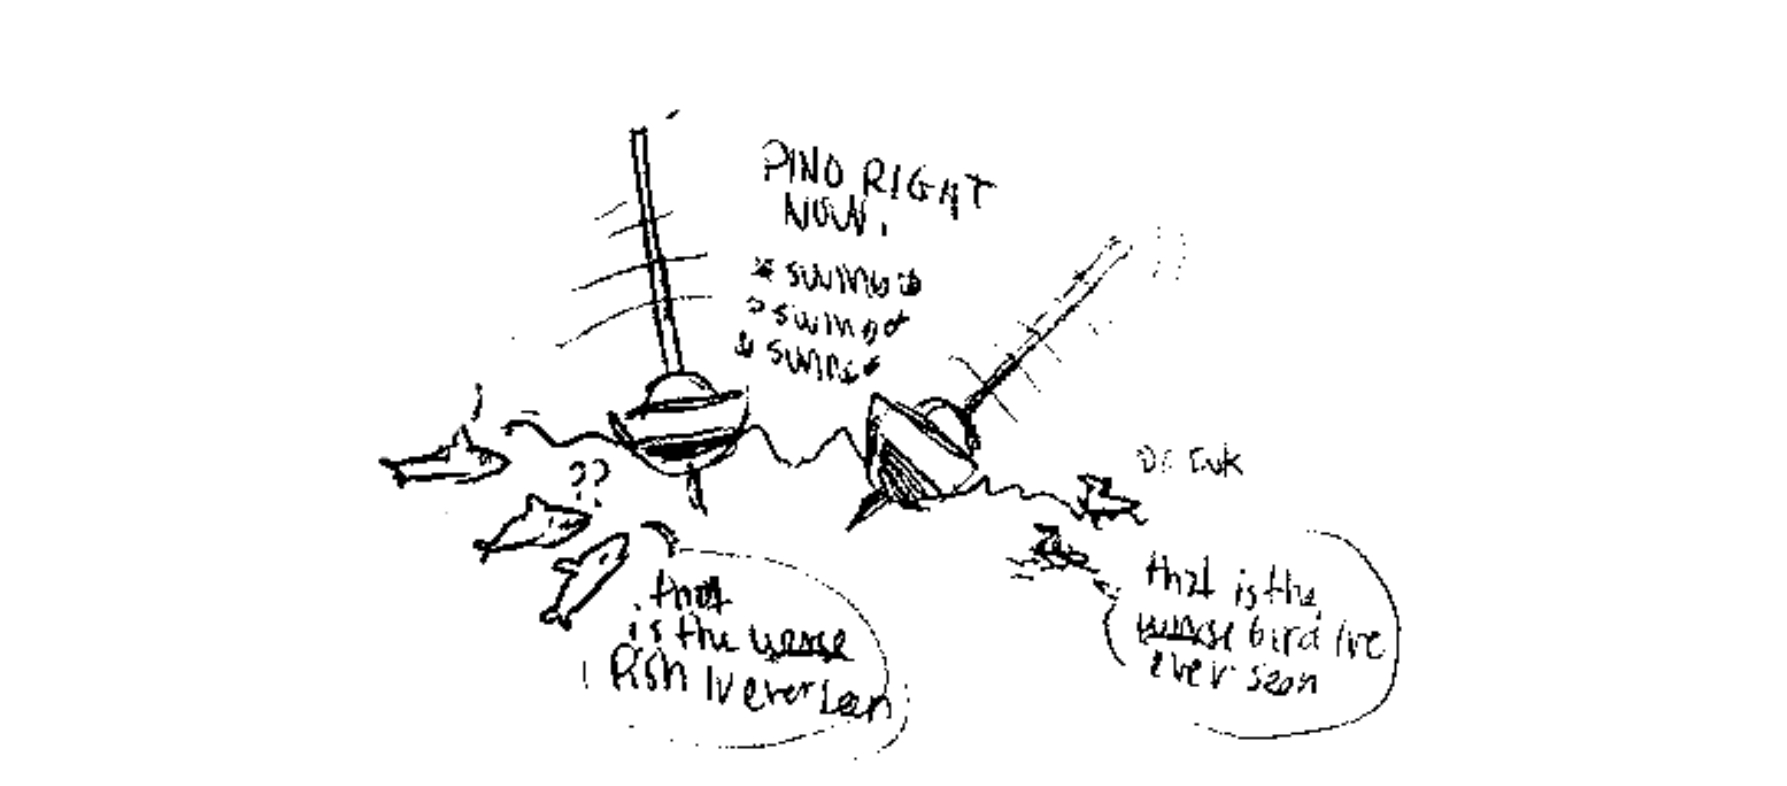 PINO RIGHT
NOW.
*swing*
*swing*
*swing*
??
that
is the worse
fish Iv ever seen
that is the
worse bird I've
ever seen